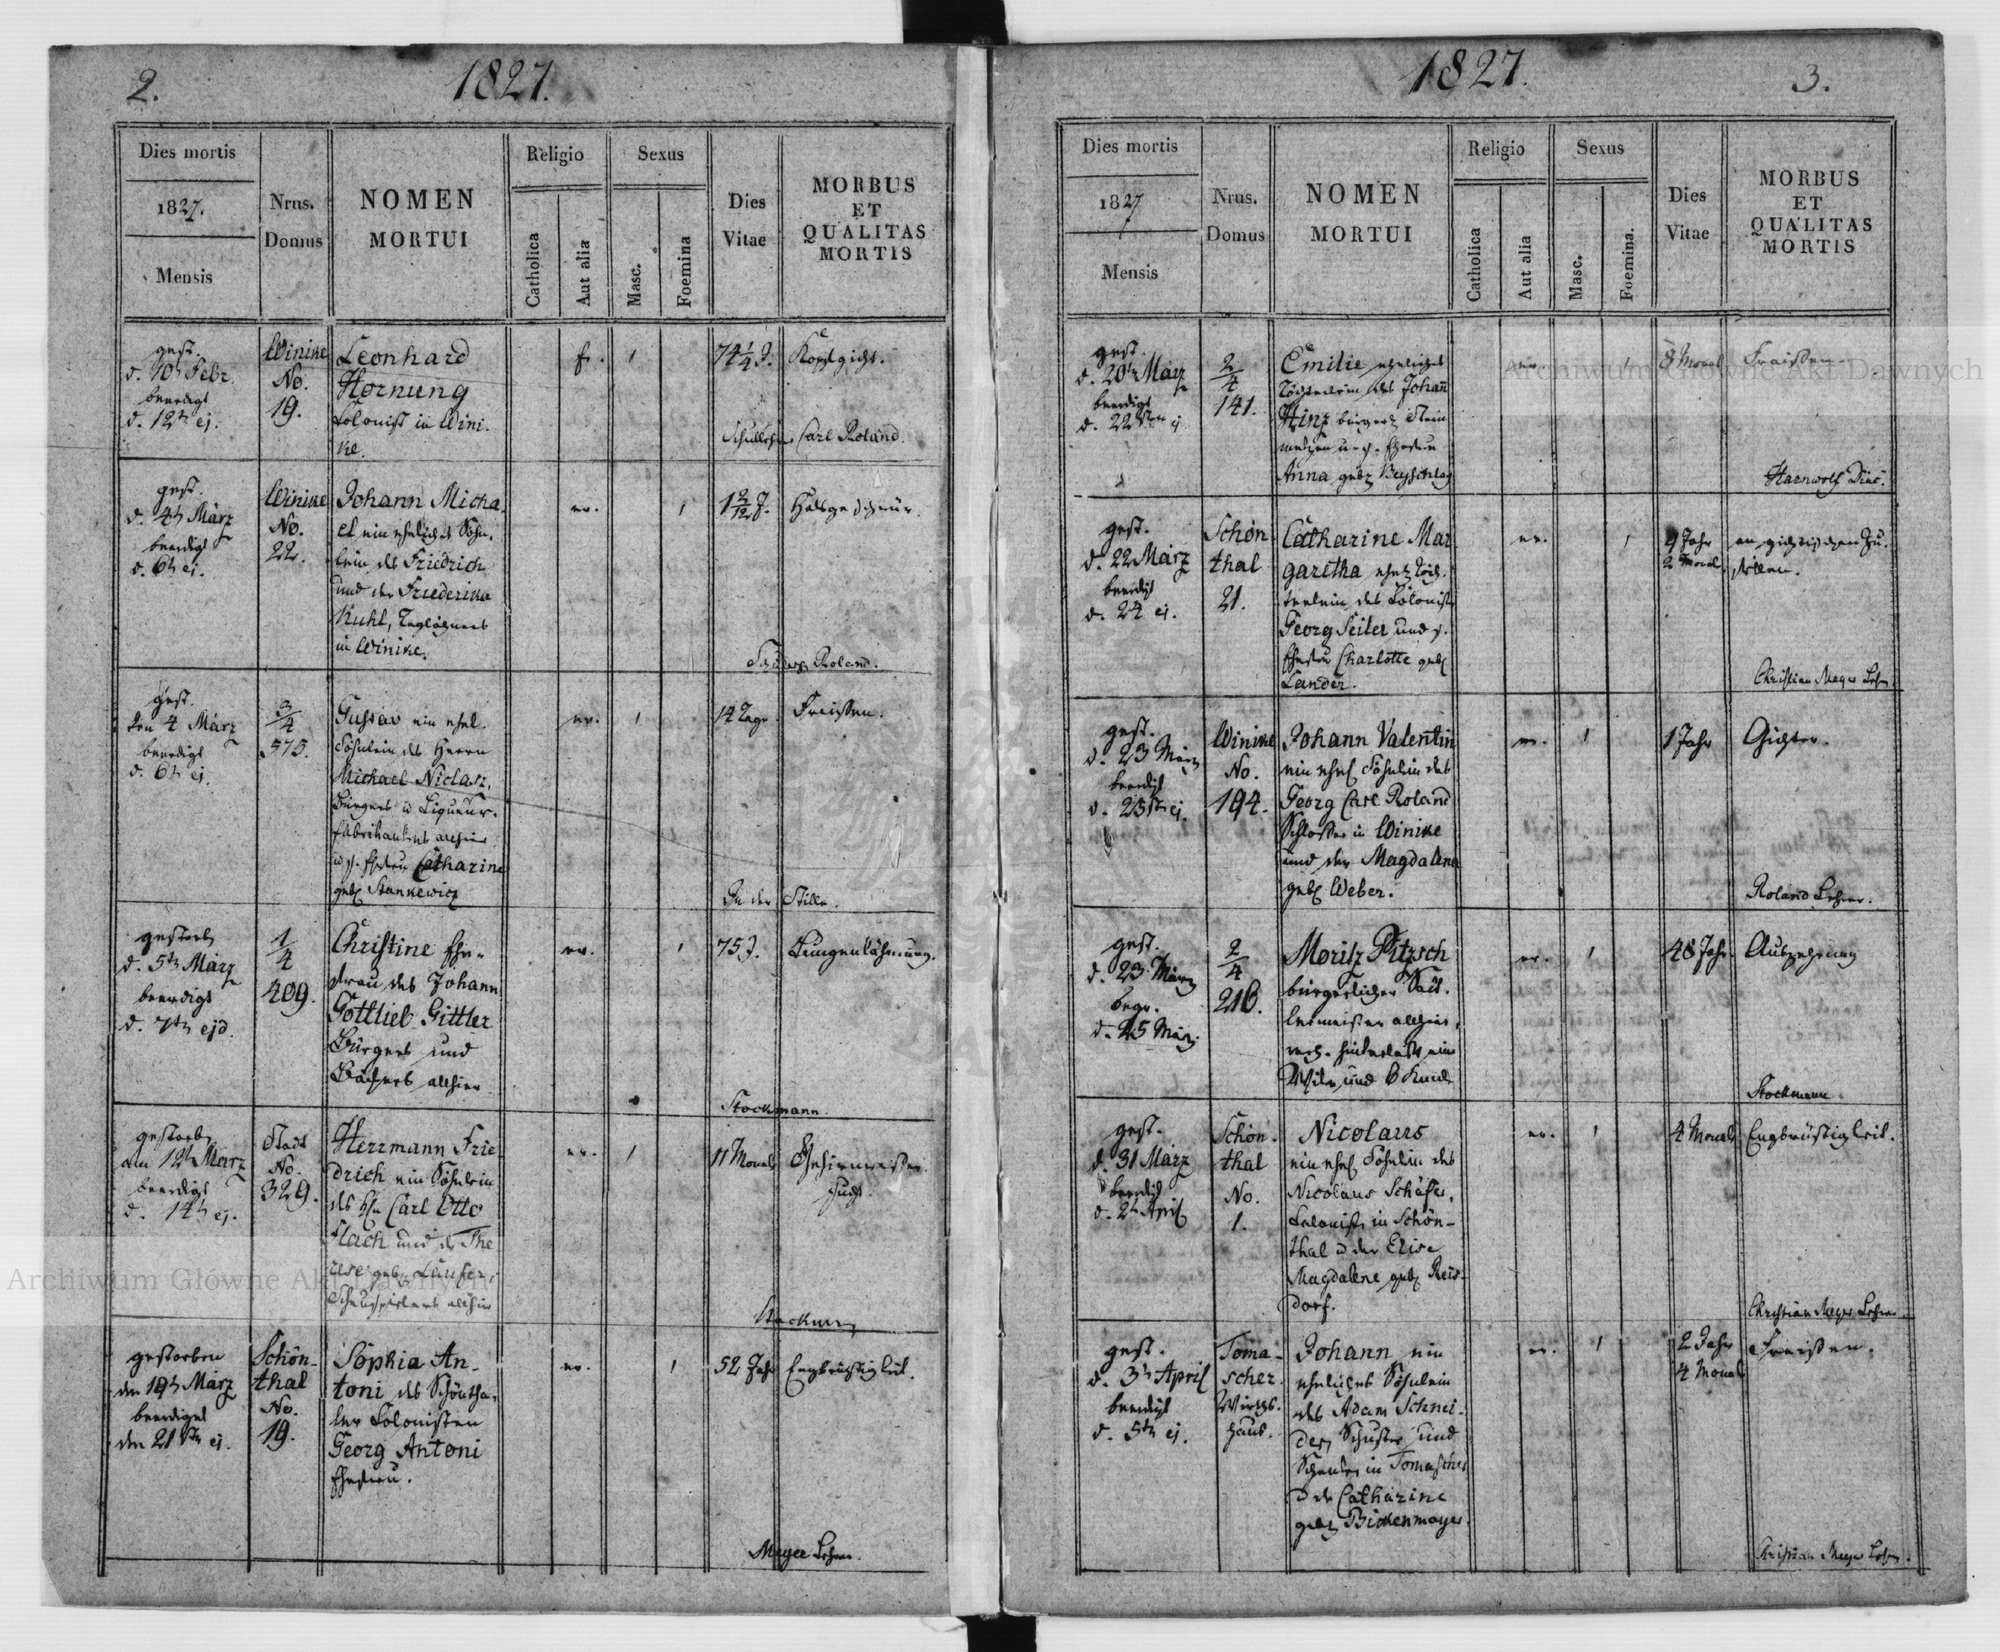 2.
1827.
Dies mortis
1827.
Mensis
Nrus.
Domus
NOMEN
MORTUI
Religio
Catholica
Aut alia
Sexus
Masc.
Foemina
Dies
Vitae
MORBUS
ET
QUALITAS
MORTIS
gest.
d. 10t Febr.
beerdigt
d. 12t ej.
Winike
No.
19.
Leonhard
Hornung
Colonist in Wini-
ke.
74 1/4 J.
Kopfgicht.
Carl Roland.
gest.
d. 4t März
beerdigt
d. 6t ej.
Winike
No.
22.
Johann Micha
el ein ehliches Söhn-
lein des Friedrich
und der Friederika
Kuhl, Taglöhners
in Winike.
ev.
1 2/12 J.
Halsgeschwür.
Roland.
gest.
den 4 März
beerdigt
d. 6t ej.
3/4
575.
Gustav ein ehel.
Söhnlein des Herrn
Michael Niclasz,
Bürgers u Liqueur-
fabrikantens allhier
u s. Ehefrau Catharine
geb. Stankewicz
ev.
14 Tage.
Fraissen.
In der Stille.
gestorb.
d. 5t März
beerdigt
d. 7t ejd.
1/4
409.
Christine Ehe-
frau des Johann
Gottlieb Gittler
Bürgers und
allhier
ev.
75 J.
Lungenlähmung.
Stockmann.
gestorb.
am 12t März
beerdigt
d. 14t ej.
Stadt
No.
329.
Herrmann Frie
drich ein Söhnlein
des H. Carl Otto
Flach und der The
rese geb.
Schauspielers allhier
ev.
11 Monat
Stockmann
gestorben
den 19t März
beerdiget
den 21ten ej.
Schön-
thal
No.
19.
Sophia An-
toni, des Schöntha-
ler Colonisten
Georg Antoni
Ehefrau.
ev.
52 Jahr
Engbrüstigkeit.
Meyer Lehrer.
1827.
3.
Dies mortis
1827
Mensis
Nrus.
Domus
NOMEN
MORTUI
Religio
Catholica
Aut alia
Sexus
Masc.
Foemina.
Dies
Vitae
MORBUS
ET
QUALITAS
MORTIS
gest.
d. 20t März
beerdigt
d. 22ten ej
2/4
141.
Emilie eheliches
Töchterlein des Johann
Hinz bürgerl. Stein
metzen u. s. Ehefrau
Anna geb. Beyschlag
ev.
8 Monat
Fraissen.
gest.
d. 22 März
beerdigt
d. 24 ej.
Schön
thal
21.
Catharine Mar
garetha ehel. Töch-
terlein des Colonist
Georg Seiler und s.
Ehefrau Charlotte geb.
Lander.
ev.
9 Jahr
2 Monat.
an gichtischen Zu-
fällen.
Christian Meyer Lehr.
gest.
d. 23 März
beerdigt
d. 25ten ej.
Winike
No.
194.
Johann Valentin
ein ehel. Söhnlein des
Georg Carl Roland
Schlosser in Winike
und der Magdalena
geb. Weber.
ev.
1 Jahr
Gichter.
Roland Lehrer.
gest.
d. 23 März
begr.
d. 25 März
2/4
216.
Moritz Pitzsch
bürgerlicher Satt-
lermeister allhier,
hinterlässt eine
Witwe und 6 Kinder
ev.
48 Jahr
Auszehrung
Stockmann
gest.
d. 31 März
beerdigt
d. 2t April
Schön-
thal
No.
1.
Nicolaus
ein ehel. Söhnlein des
Nicolaus Schäfer,
Colonist in Schön-
thal u der Elise
Magdalene geb. Reis-
dorf.
ev.
4 Monat
Engbrüstigkeit.
Christian Meyer Lehrer
gest.
d. 3t April
beerdigt
d. 5ten ej.
Toma-
scher
Wirths-
haus.
Johann ein
eheliches Söhnlein
des Adam Schnei-
der, Schuster und
Schenker in Tomascher
u der Catharine
geb. Birkenmayer.
ev.
2 Jahr
4 Monat
Fraissen.
Christian Meyer Lehr.
Archiwum Główne Akt Dawnych
Archiwum Główne Akt Dawnych